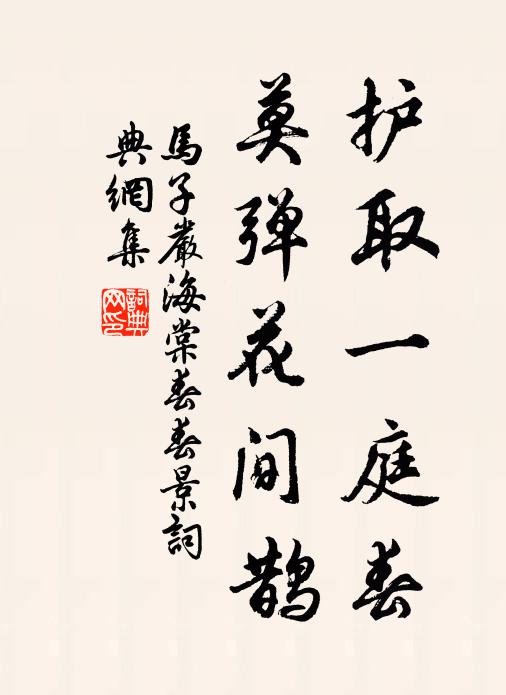 护取一庭春
莫弹花间鹊
馬子嚴海棠春春景詞
典網集
詞典網印